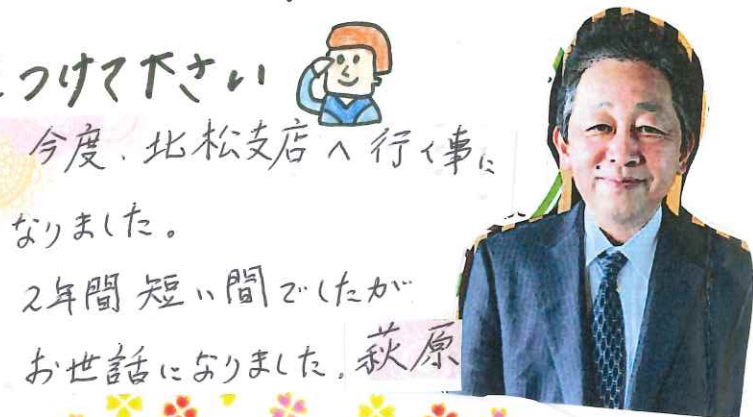 つけて下さい
今度、北松支店へ行く事に
なりました。
2年間 短い間でしたが
お世話になりました。萩原